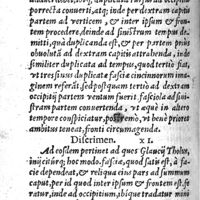 porrecta conuertitur, atq; inde per dextram capitis
partem ad verticem, & inter ipsum & fron-
tem procedere, deinde ad sinistrum tempus de-
mitti, qua duplicanda est, & per partem prius
obuolutā ad dextram capitis attrahenda, ibi
similiter duplicata ad tempus, quod tertiò fiat,
vt tres sinus duplicatæ fasciæ cincinnorum ima-
ginem referāt. Deinde ex dextra supra aurem
occipitij partem venum fuerit. fasciola ad sini-
stram partem conuertenda, vt atque in altero
tempore conspiciatur, postremò, vt bene prioret
ambitus teneat, fronti circumagenda.
Discrimen. XI.
Ad eosdem pertinet ad ques Glaucij Tholus,
inijcitúrq; hoc modo. fasciæ, quod satis est, à fa-
cie dependeat, & reliqua eius pars ad summum
caput, per id quod inter ipsum & frontem est. fe-
ratur, inde ad occipitium, ibique tradatur mini-